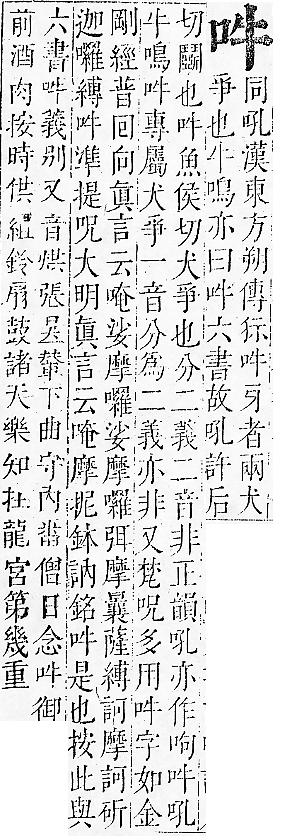 吽
同吼漢東方朔傳狋吽牙者兩犬
爭也牛鳴亦曰吽六書故吼許后
切鬭也吽魚侯切犬爭也分二義二音非正韻吼亦作呴吽吼
牛鳴吽專屬犬爭一音分爲二義亦非又梵呪多用吽字如金
剛經普回向眞言云唵娑摩囉娑摩囉弭摩曩薩縛訶摩訶斫
迦囉縛吽準提呪大明眞言云唵摩抳鉢訥銘吽是也按此與
六書吽義別又音烘張昱輦下曲守內番僧日念吽御
前酒肉按時供組鈴扇鼓諸天樂知在龍宮第幾重